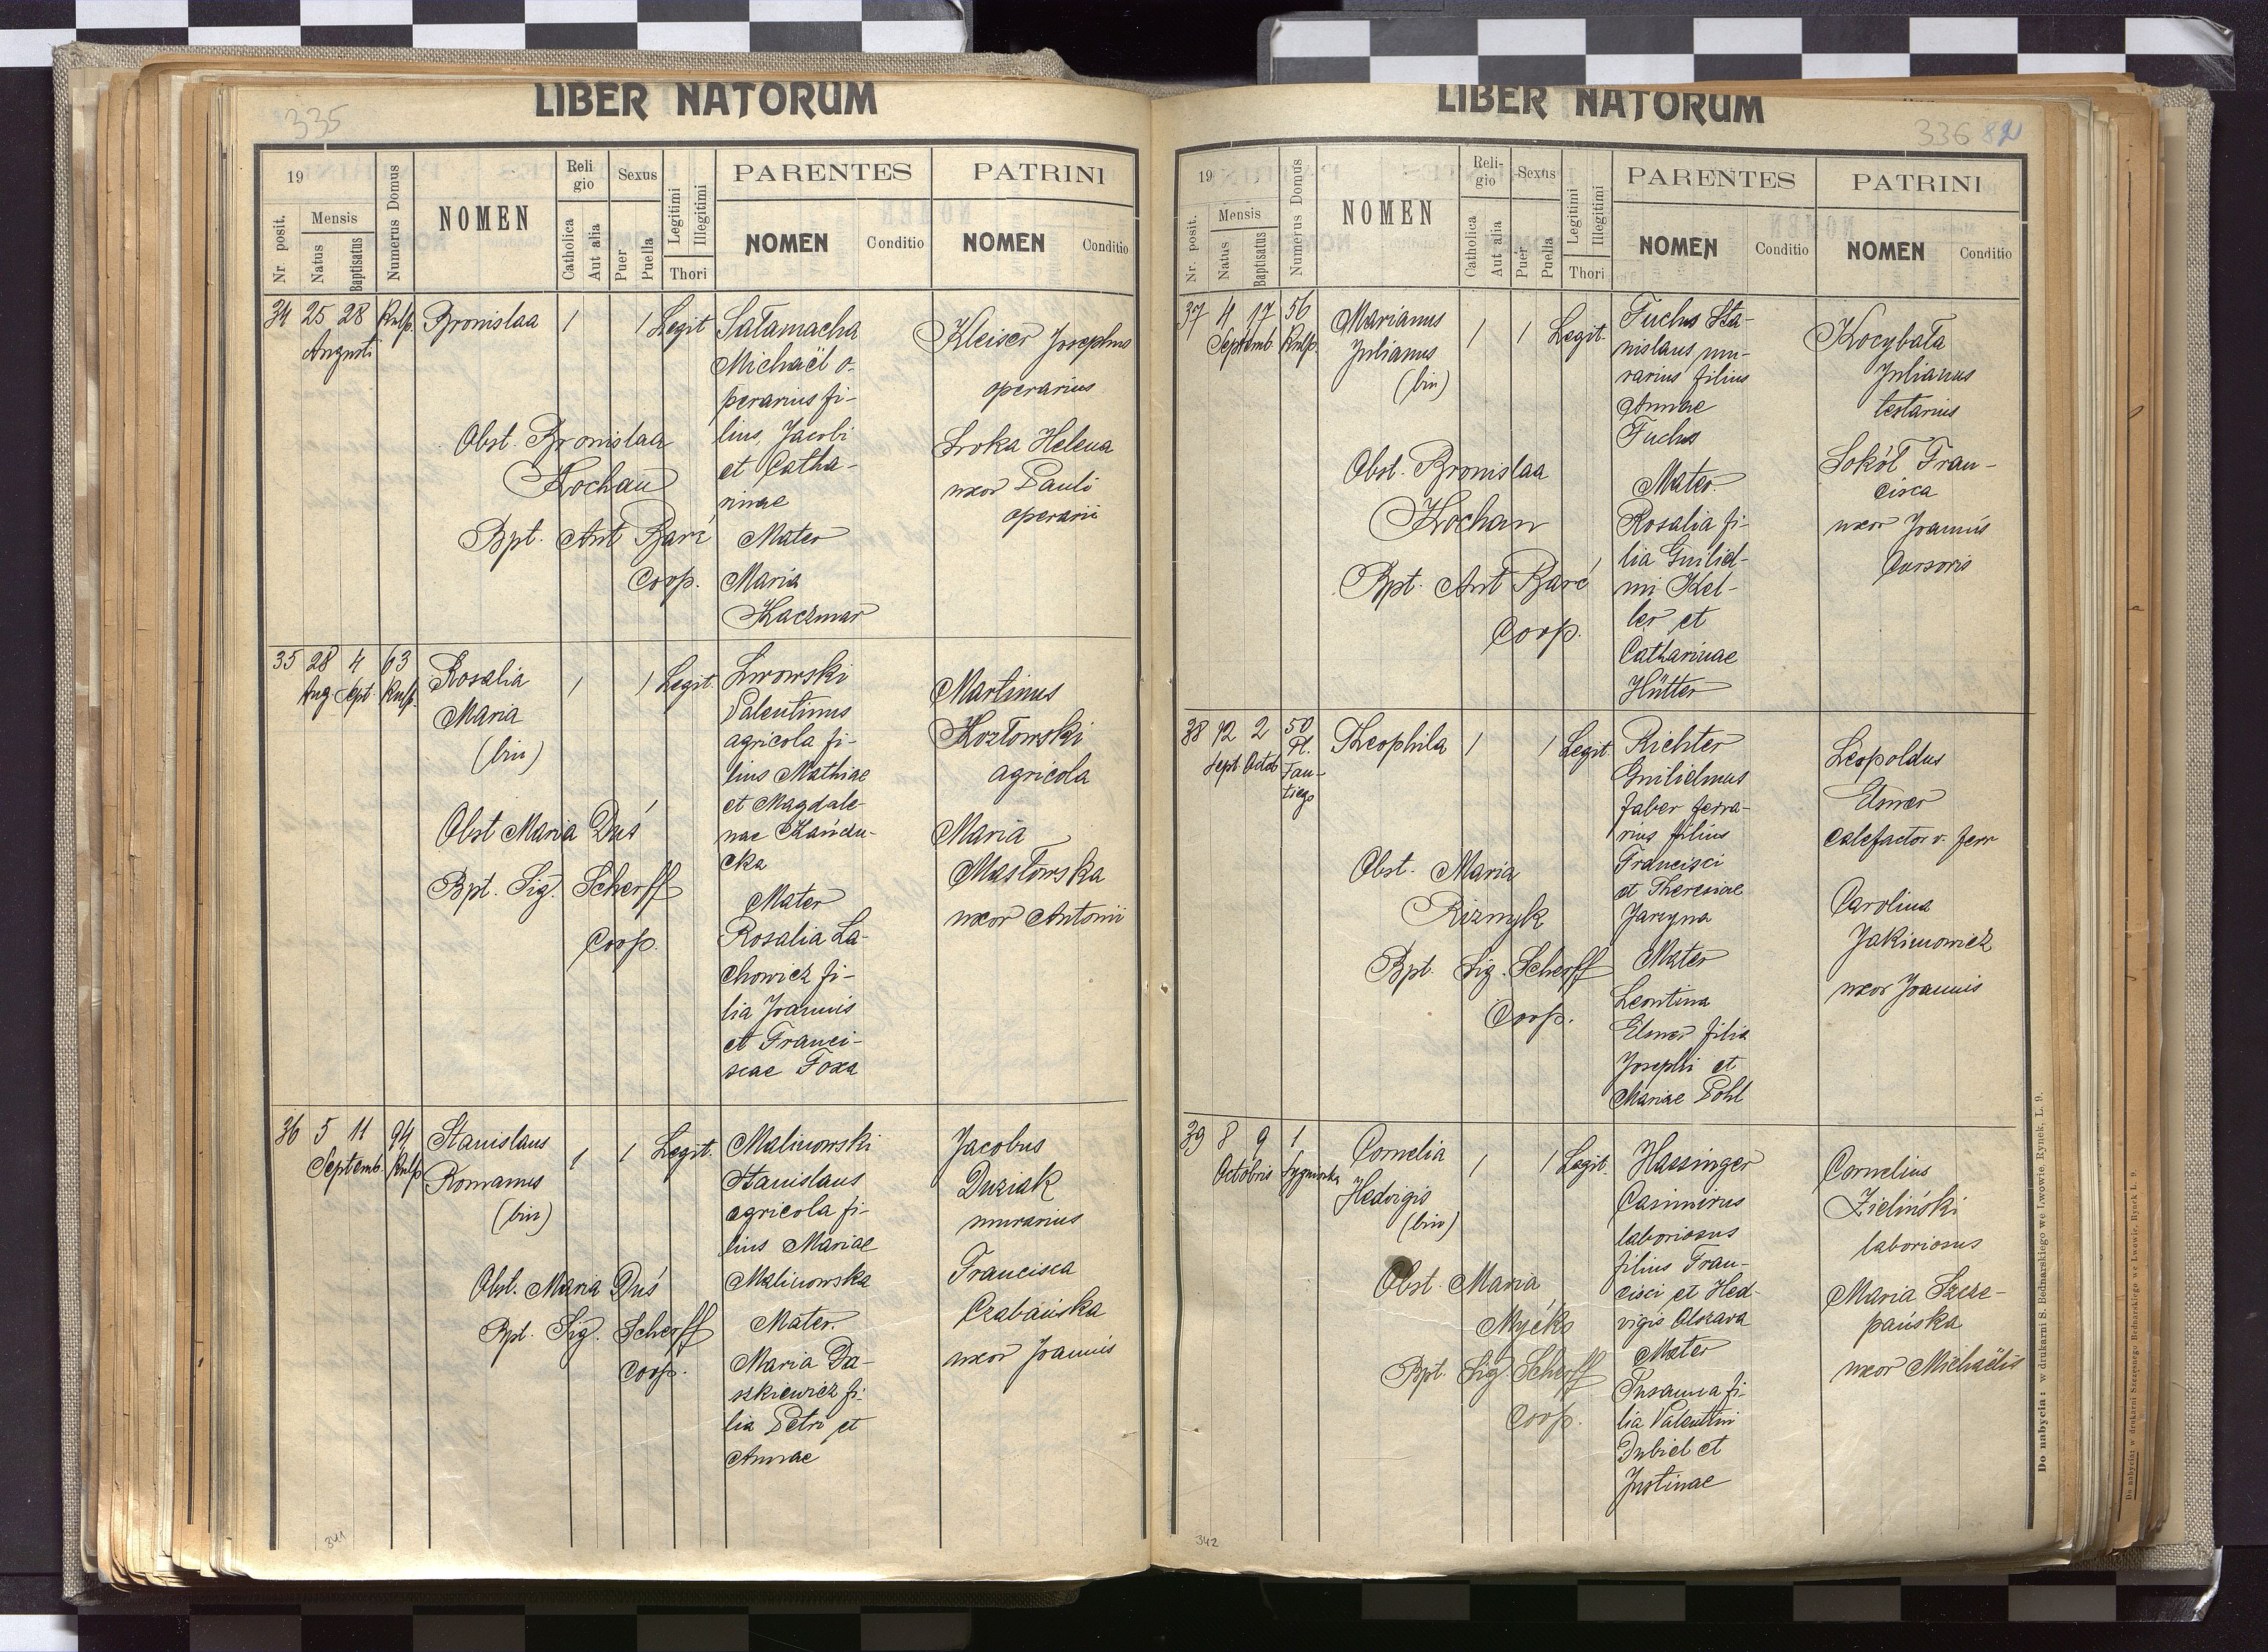 335
LIBER NATORUM
19
Nr. posit.
Mensis
Natus
Baptisatus
Numerus Domus
NOMEN
Religio
Catholica
Aut alia
Sexus
Puer
Puella
Legitimi
Illegitimi
Thori
PARENTES
NOMEN
Conditio
PATRINI
NOMEN
Conditio
34 25 28 Kulp. Bronislaa 1 1 Legit
Augusti
Obst. Bronislaa
Kochan
Bpt. Ant Barć
Coop.
Sałamacha
Michaël o-
perarius fi-
lius Jacobi
et Catha-
rinae
Mater
Maria
Kaczmar
Kleiser Josephus
operarius
Sroka Helena
uxor Pauli
operarii
35 28 4 63 Rosalia 1 1 Legit.
Aug Sept. Kulp.
Maria
(bin)
Obst Maria Duś
Bpt. Sig. Scherff
Coop.
Lwowski
Valentinus
agricola fi-
lius Mathiae
et Magdale-
nae
cka
Mater
Rosalia La-
chowicz fi-
lia Joannis
et Franci-
scae Foxa
Martinus
Kozłowski
agricola
Maria
Masłowska
uxor Antonii
36 5 11 94 Stanislaus 1 1 Legit.
Septemb. Kulp
Romanus
(bin)
Obst. Maria Duś
Bpt. Sig. Scherff
Coop.
Malinowski
Stanislaus
agricola fi-
lius Mariae
Malinowska
Mater.
Maria Da-
szkiewicz fi-
lia Petri et
Annae
Jacobus
Duziak
murarius
Francisca
Czabańska
uxor Joannis
341
LIBER NATORUM
336 82
19
Nr. posit.
Mensis
Natus
Baptisatus
Numerus Domus
NOMEN
Reli-
gio
Catholica
Aut alia
Sexus
Puer
Puella
Legitimi
Illegitimi
Thori
PARENTES
NOMEN
Conditio
PATRINI
NOMEN
Conditio
37 4 17 56 Marianus 1 1 Legit.
Septemb Kulp.
Julianus
(bin)
Obst. Bronislaa
Kochan
Bpt. Ant Barć
Coop.
Fuchs Sta-
nislaus mu-
rarius filius
Annae
Fuchs
Mater.
Rosalia fi-
lia Guiliel-
mi Kel-
ler et
Catharinae
Hütter
Kocybała
Julianus
testarius
Sokół Fran-
cisca
uxor Joannis
Cursoris
38 12 2 50 Theophila 1 1 Legit
Sept. Octob
Pl.
Fan-
tiego
Obst. Maria
Riznyk
Bpt. Sig. Scherff
Coop.
Richter
Guilielmus
faber ferra-
rius filius
Francisci
et Theresiae
Jaryna
Mater
Leontina
Elsner filia
Josephi et
Mariae Pohl
Leopoldus
Elsner
calefactor v. ferr
Carolina
Jakimowicz
uxor Joannis
39 8 9 1 Cornelia 1 1 Legit.
Octobris
Hedvigis
(bin)
Obst. Maria
Myćko
Bpt. Sig Scherff
Coop.
Hassinger
Casimirus
laboriosus
filius Fran-
cisci et Hed-
vigis Olszava
Mater
Susanna fi-
lia Valentini
Dubiel et
Justinae
Cornelius
Zieliński
laboriosus
Maria Szcze-
pańska
uxor Michaëlis
342
Do nabycia: w drukarni S. Bednarskiego we Lwowie, Rynek, L. 9.
Do nabycia: w drukarni Szczęsnego Bednarskiego we Lwowie, Rynek L. 9.